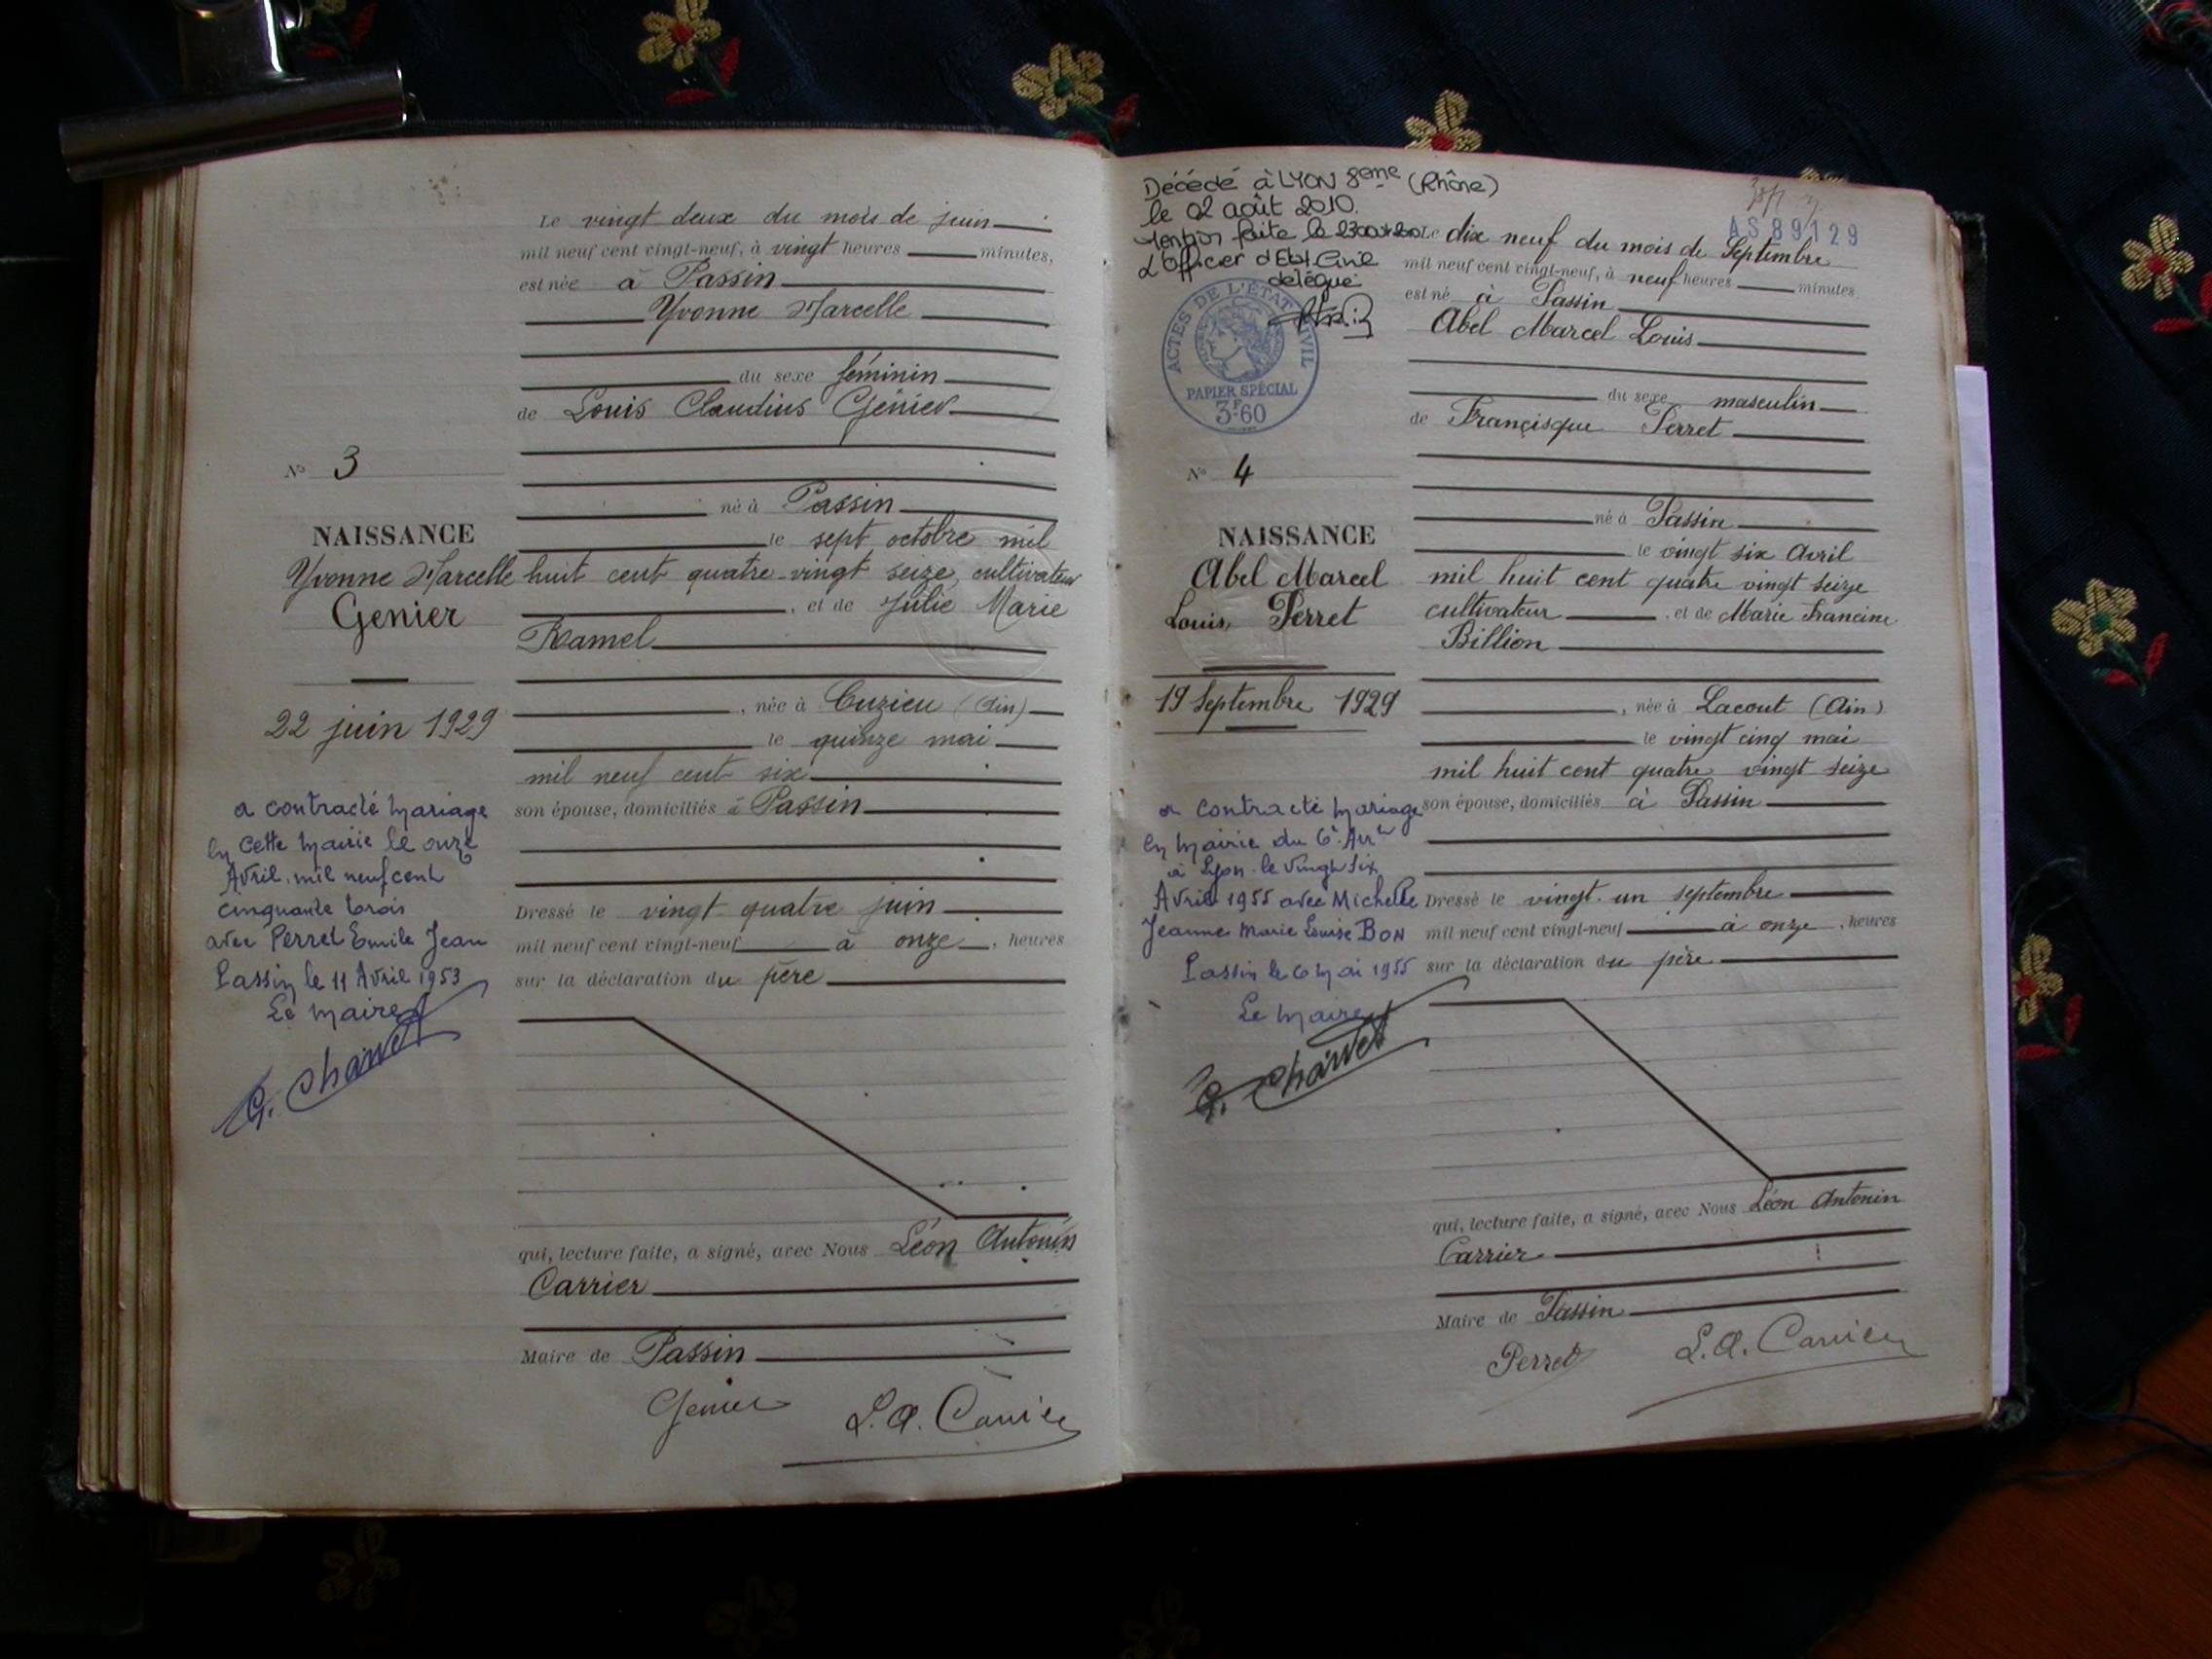 Le vingt deux du mois de juin
mil neuf cent vingt-neuf, à vingt heures minutes,
est née à Passin
Yvonne Marcelle
du sexe féminin
de Louis Claudius Génier
né à Passin
le sept octobre mil
huit cent quatre-vingt seize, cultivateur
, et de Julie Marie
Ramel
, née à Cuzieu (Ain)
le quinze mai
mil neuf cent six
son épouse, domiciliés à Passin
Dressé le vingt quatre juin
mil neuf cent vingt-neuf à onze, heures
sur la déclaration du père
qui, lecture faite, a signé, avec Nous Léon Antonin
Carrier
Maire de Passin
Genier L. A. Carrier
N° 3
NAISSANCE
Yvonne Marcelle
Genier
22 juin 1929
a contracté mariage
en cette mairie le onze
Avril mil neuf cent
cinquante trois
avec Perret Emile Jean
Passin le 11 Avril 1953
Le Maire
G. Charvet
Décédé à LYON 8eme (Rhône)
le 02 août 2010.
Mention faite le
L'Officier d'Etat Civil
délégué
ACTES DE L'ÉTAT CIVIL
PAPIER SPÉCIAL
3F60
N° 4
NAISSANCE
Abel Marcel
Louis Perret
19 Septembre 1929
a contracté mariage
en mairie du 6e Arrt
à Lyon le vingt six
Avril 1955 avec Michelle
Jeanne Marie Louise BON
Passin le 6 Mai 1955
Le Maire
G. Charvet
AS 89129
Le dix neuf du mois de Septembre
mil neuf cent vingt-neuf, à neuf heures minutes
est né à Passin
Abel Marcel Louis
du sexe masculin
de Françisque Perret
né à Passin
le vingt six Avril
mil huit cent quatre vingt seize
cultivateur , et de Marie Francine
Billion
, née à Lacout (Ain)
le vingt cinq mai
mil huit cent quatre vingt seize
son épouse, domiciliés à Passin
Dressé le vingt-un septembre
mil neuf cent vingt-neuf à onze, heures
sur la déclaration du père
qui, lecture faite, a signé, avec Nous Léon Antonin
Carrier
Maire de Passin
Perret L. A. Carrier